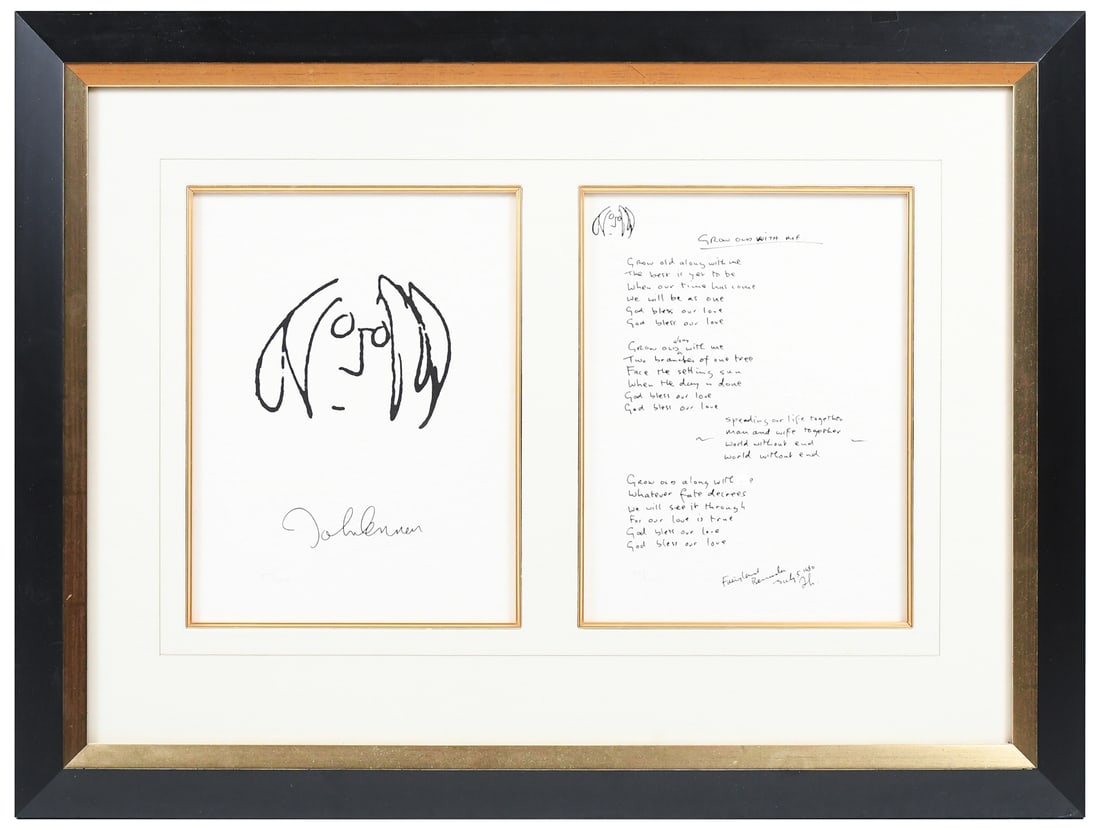 John Lennon
GROW OLD WITH ME
Grow old along with me
The best is yet to be
When our time has come
We will be as one
God bless our love
God bless our love
along
Grow old with me
Two branches of one tree
Face the setting sun
When the day is done
God bless our love
God bless our love
Spending our life together
Man and wife together
World without end
World without end
Grow old along with
Whatever fate decrees
We will see it through
For our love is true
God bless our love
God bless our love
Fairylands
Bermuda July 5 1980